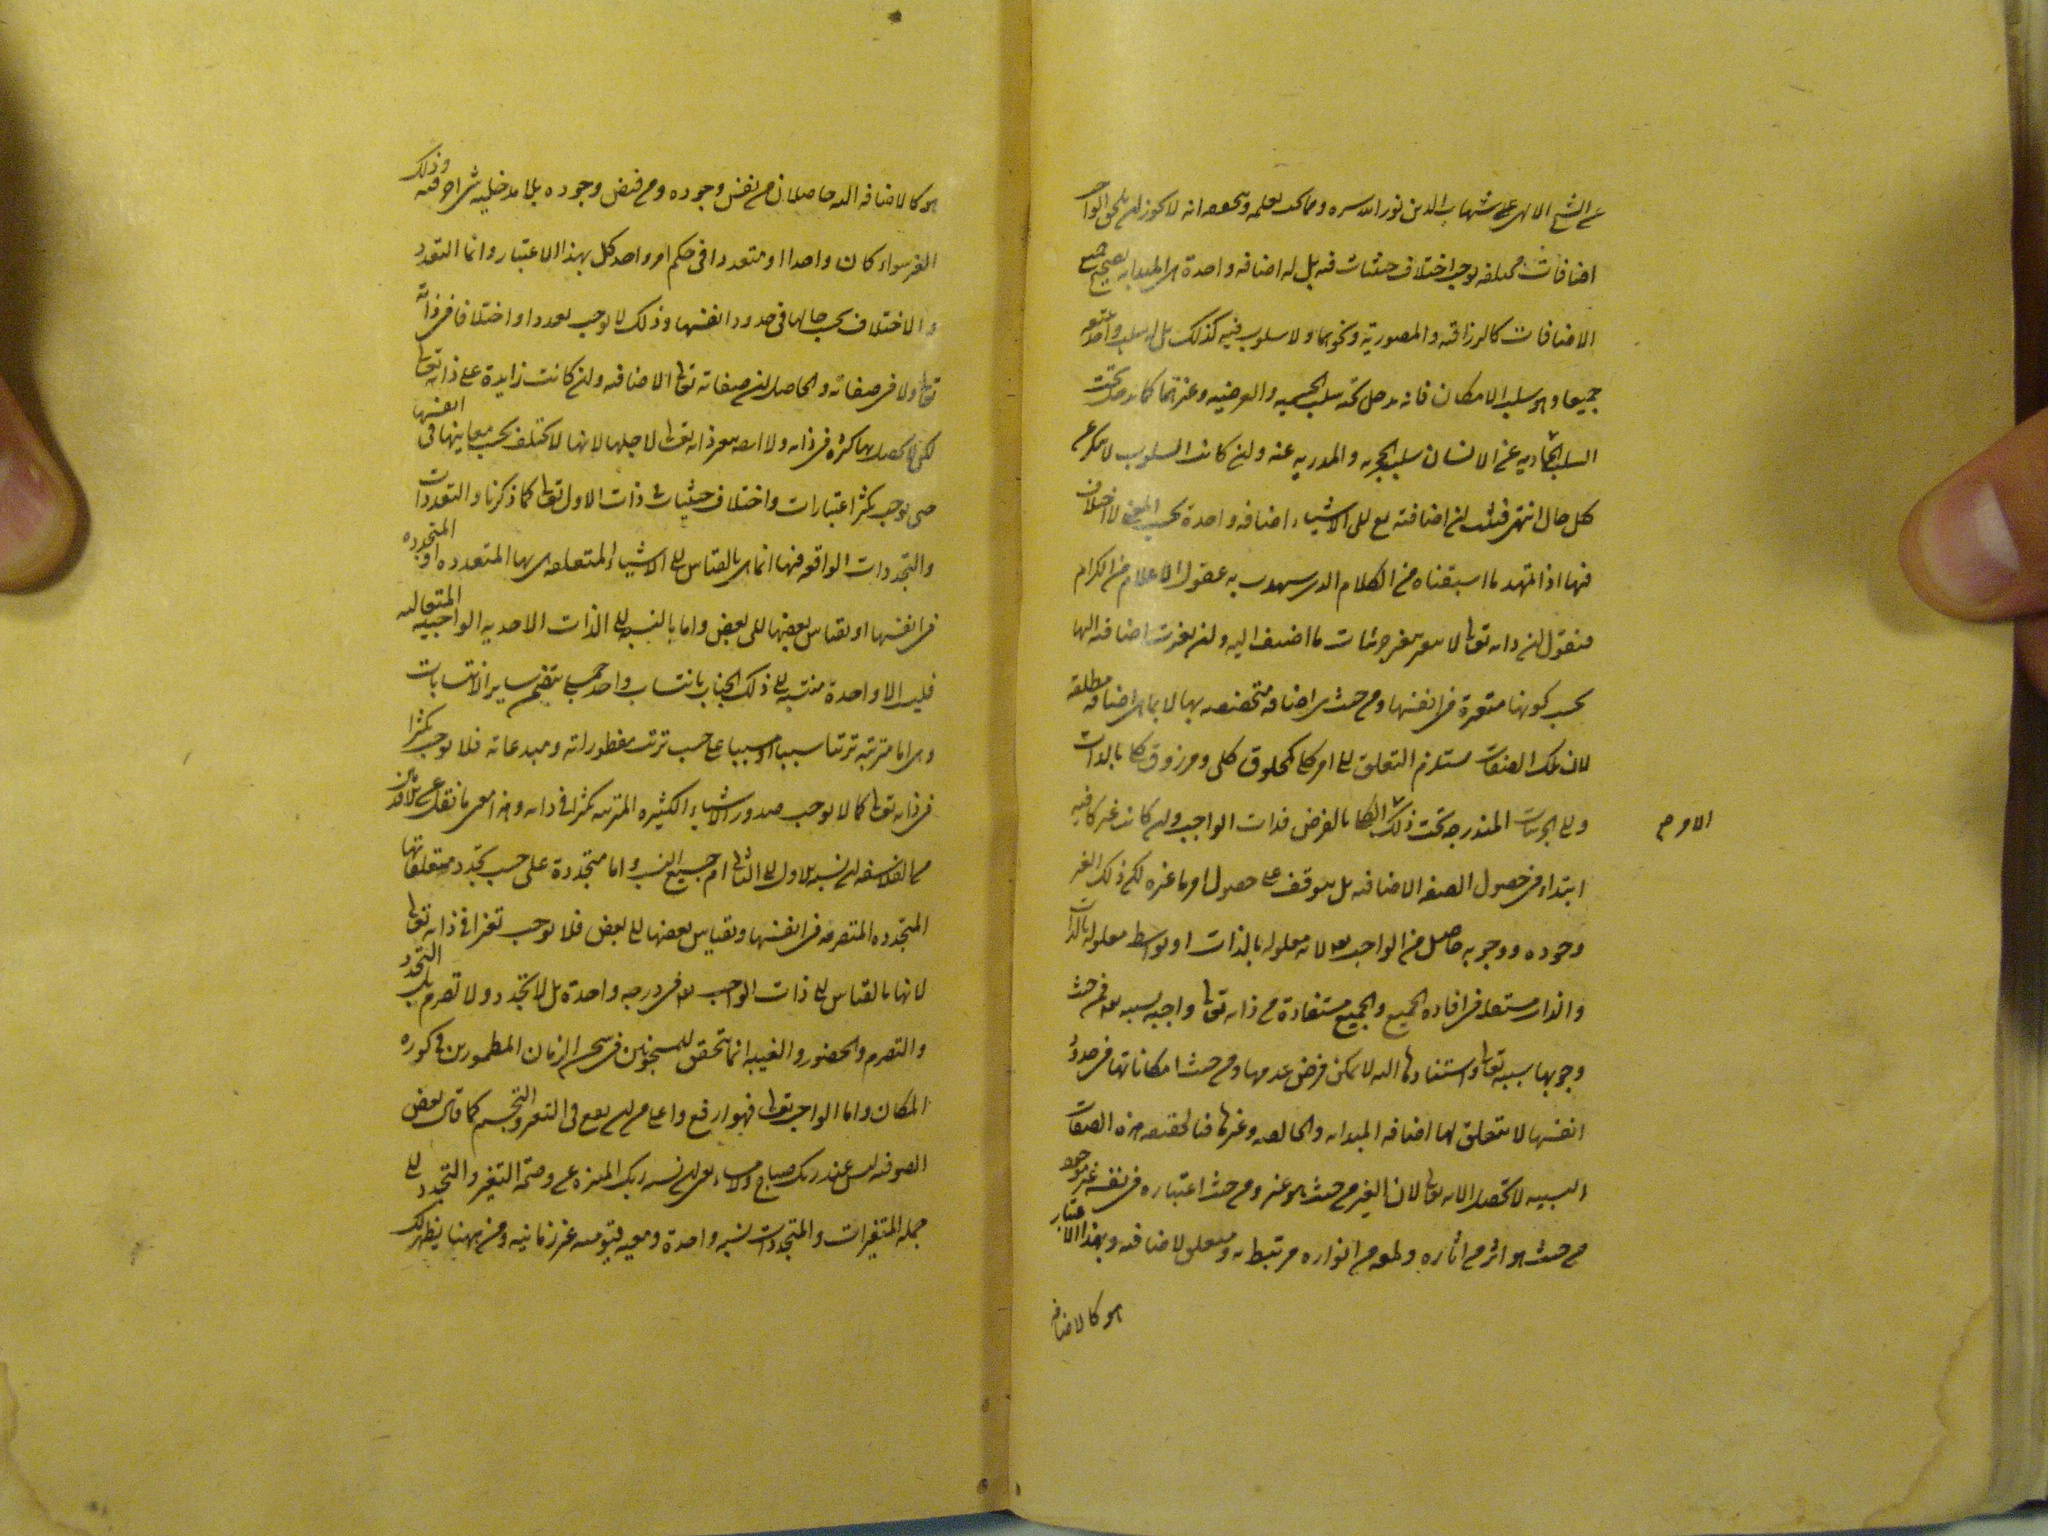 على الشيخ الالهى شهاب الدين نور الله سره ومما يجب تعلمه وتحققه انه لا يجوز ان يلحق الواجب
اضافات مختلفه توجب اختلاف حيثيات فيه بل له اضافه واحدة هى المبدايه تصحح جميع
الاضافات كالرازقيه والمصورية ونحوهما ولا سلوب فيه كذلك بل له سلب واحد يتبعه
جميعا وهو سلب الامكان فانه يدخل تحته سلب الجسميه والعرضيه وغيرهما كما يدخل تحت
السلب الجماديه عن الانسان سلب الحجريه والمدريه عنه وان كانت السلوب لا يتكثر على
كل حال انتهى فثبت ان اضافته تع الى الاشياء اضافه واحدة بحسب المعنى لا اختلاف
فيها اذا تمهد ما اسبقناه من الكلام الذى عقول الاعلام من الكرام
فنقول ان ذاته تعالى لا يتغير بتغير جزئيات ما اضيف اليه وان تغيرت اضافته اليها
بحسب كونها متغيرة فى انفسها ومن حيث هى اضافه مختصه بها لا بما هى اضافه مطلقه
لان تلك الصفات مستلزم التعلق الى امر كلى كمخلوق كلى ومرزوق كلى بالذات
والى الجزئيات المندرجه تحت ذلك الكلى بالعرض فذات الواجب وان كانت غير كافيه
الاوم
ابتداء فى حصول الصفه الاضافيه بل يتوقف على حصول امر ما غيره لكن ذلك الغير
وجوده ووجوبه حاصل من الواجب تع لانه معلوله بالذات او بتوسط معلوله بالذات
والذات مستقله فى افاده الجميع والجميع مستفادة من ذاته تعالى واجبه بسببه تع فمن حيث
وجوبها بسببه تعالى واستنادها اليه لا يمكن فرض عدمها ومن حيث امكاناتها فى حدود
انفسها لا يتعلق لها اضافه المبدايه والخالقيه وغيرها فبالحقيقه هذه الصفات
النسبيه لا تحصل الا به تعالى لان الغير من حيث هو غير ومن حيث اعتباره فى نفسه غير موجود
من حيث هو اثر من اثاره ولمعه من انواره مرتبط به ومتعلق لاضافته وبهذا الاعتبار
هو كالاضافه
هو كالاضافه اليه حاصلان من نفس وجوده ومن فيض وجوده بلا مدخليه شئ اخر فيه وذلك
الغير سواء كان واحدا او متعددا فى حكم امر واحد كلى بهذا الاعتبار وانما التعدد
والاختلاف بحسب حالها فى حدود انفسها وذلك لا يوجب تعددا واختلافا فى ذاته
تعالى ولا فى صفاته والحاصل ان صفاته تعالى الاضافيه وان كانت زايدة على ذاته تعالى
لكن لا يحصل بها كثرة فى ذاته ولا ذاته تعالى لاجلها لانها لا تختلف بحسب معاينها فى انفسها
حتى يوجب تكثر اعتبارات واختلاف حيثيات فى ذات الاول تعالى كما ذكرنا والتعددات
والتجددات الواقعه فيها انما هى بالقياس الى الاشياء المتعلقه هى بها المتعدده او المتجدده
فى انفسها او بقياس بعضها الى بعض واما بالنسبه الى الذات الاحديه الواجبيه المتعاليه
فليس الا واحدة منتسبه الى ذلك الجناب بانتساب واحد جملى يتضمن ساير الانتسابات
وهى اما مترتبه ترتبا سببيا ومسببيا على حسب ترتب مفطوراته ومبدعاته فلا توجب تكثرا
فى ذاته تعالى كما لا يوجب صدور الاشياء الكثيره المترتبه تكثرا فى ذاته وهذا معنى ما نقل عن تلامذه
الفلاسفه ان نسبه الاول الى الثانى ام جميع النسب واما متجددة على حسب تجدد متعلقاتها
المتجدده المتصرمه فى انفسها وبقياس بعضها الى بعض فلا توجب تغيرا فى ذاته تعالى
لانها بالقياس الى ذات الواجب تع فى درجه واحدة بل لا تجدد ولا تصرم بل التجدد
والتصرم والحضور والغيبه انما تتحقق للمسجونين فى سجن الزمان المطمورين فى كوره
المكان واما الواجب تعالى فهو ارفع واعلى من ان يقع فى التغير والتجسم كما قال بعض
الصوفيه ليس عند ربك صباح ولا مساء يعنى ان نسبه ربك المنزه عن وصمة التغير والتجدد الى
جمله المتغيرات والمتجددات نسبه واحدة ومعيه قيوميه غير زمانيه ومن ههنا يظهر لك